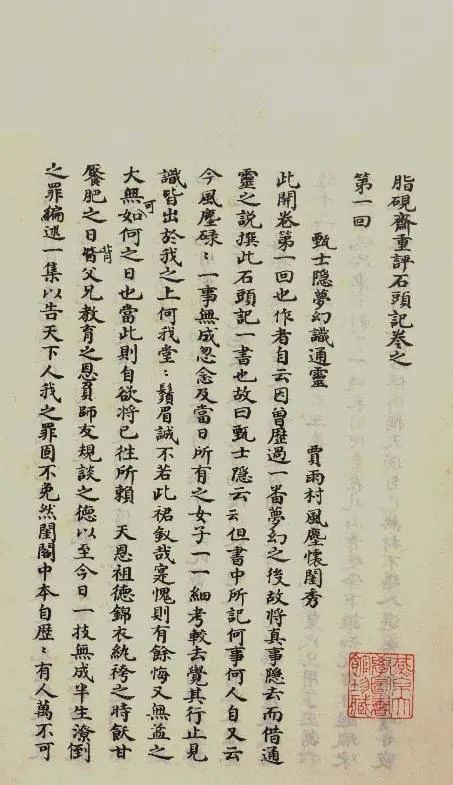 脂硯齋重評石頭記卷之
第一回
甄士隐夢幻識通靈　賈雨村風塵懷閨秀
此開卷第一回也作者自云因曾歷過一番夢幻之後故將真事隐去而借通
靈之說撰此石頭記一書也故曰甄士隐云云但書中所記何事何人自又云
今風塵碌：一事無成忽念及當日所有之女子一一細考較去覺其行止見
識皆出於我之上何我堂：鬚眉誠不若此裙釵哉寔愧則有餘悔又無益之
大無可如何之日也當此則自欲將已徃所賴　天恩祖德錦衣紈袴之時飫甘
饜肥之日背父兄教育之恩負師友規談之德以至今日一技無成半生潦倒
之罪編述一集以告天下人我之罪固不免然閨閣中本自歷：有人萬不可